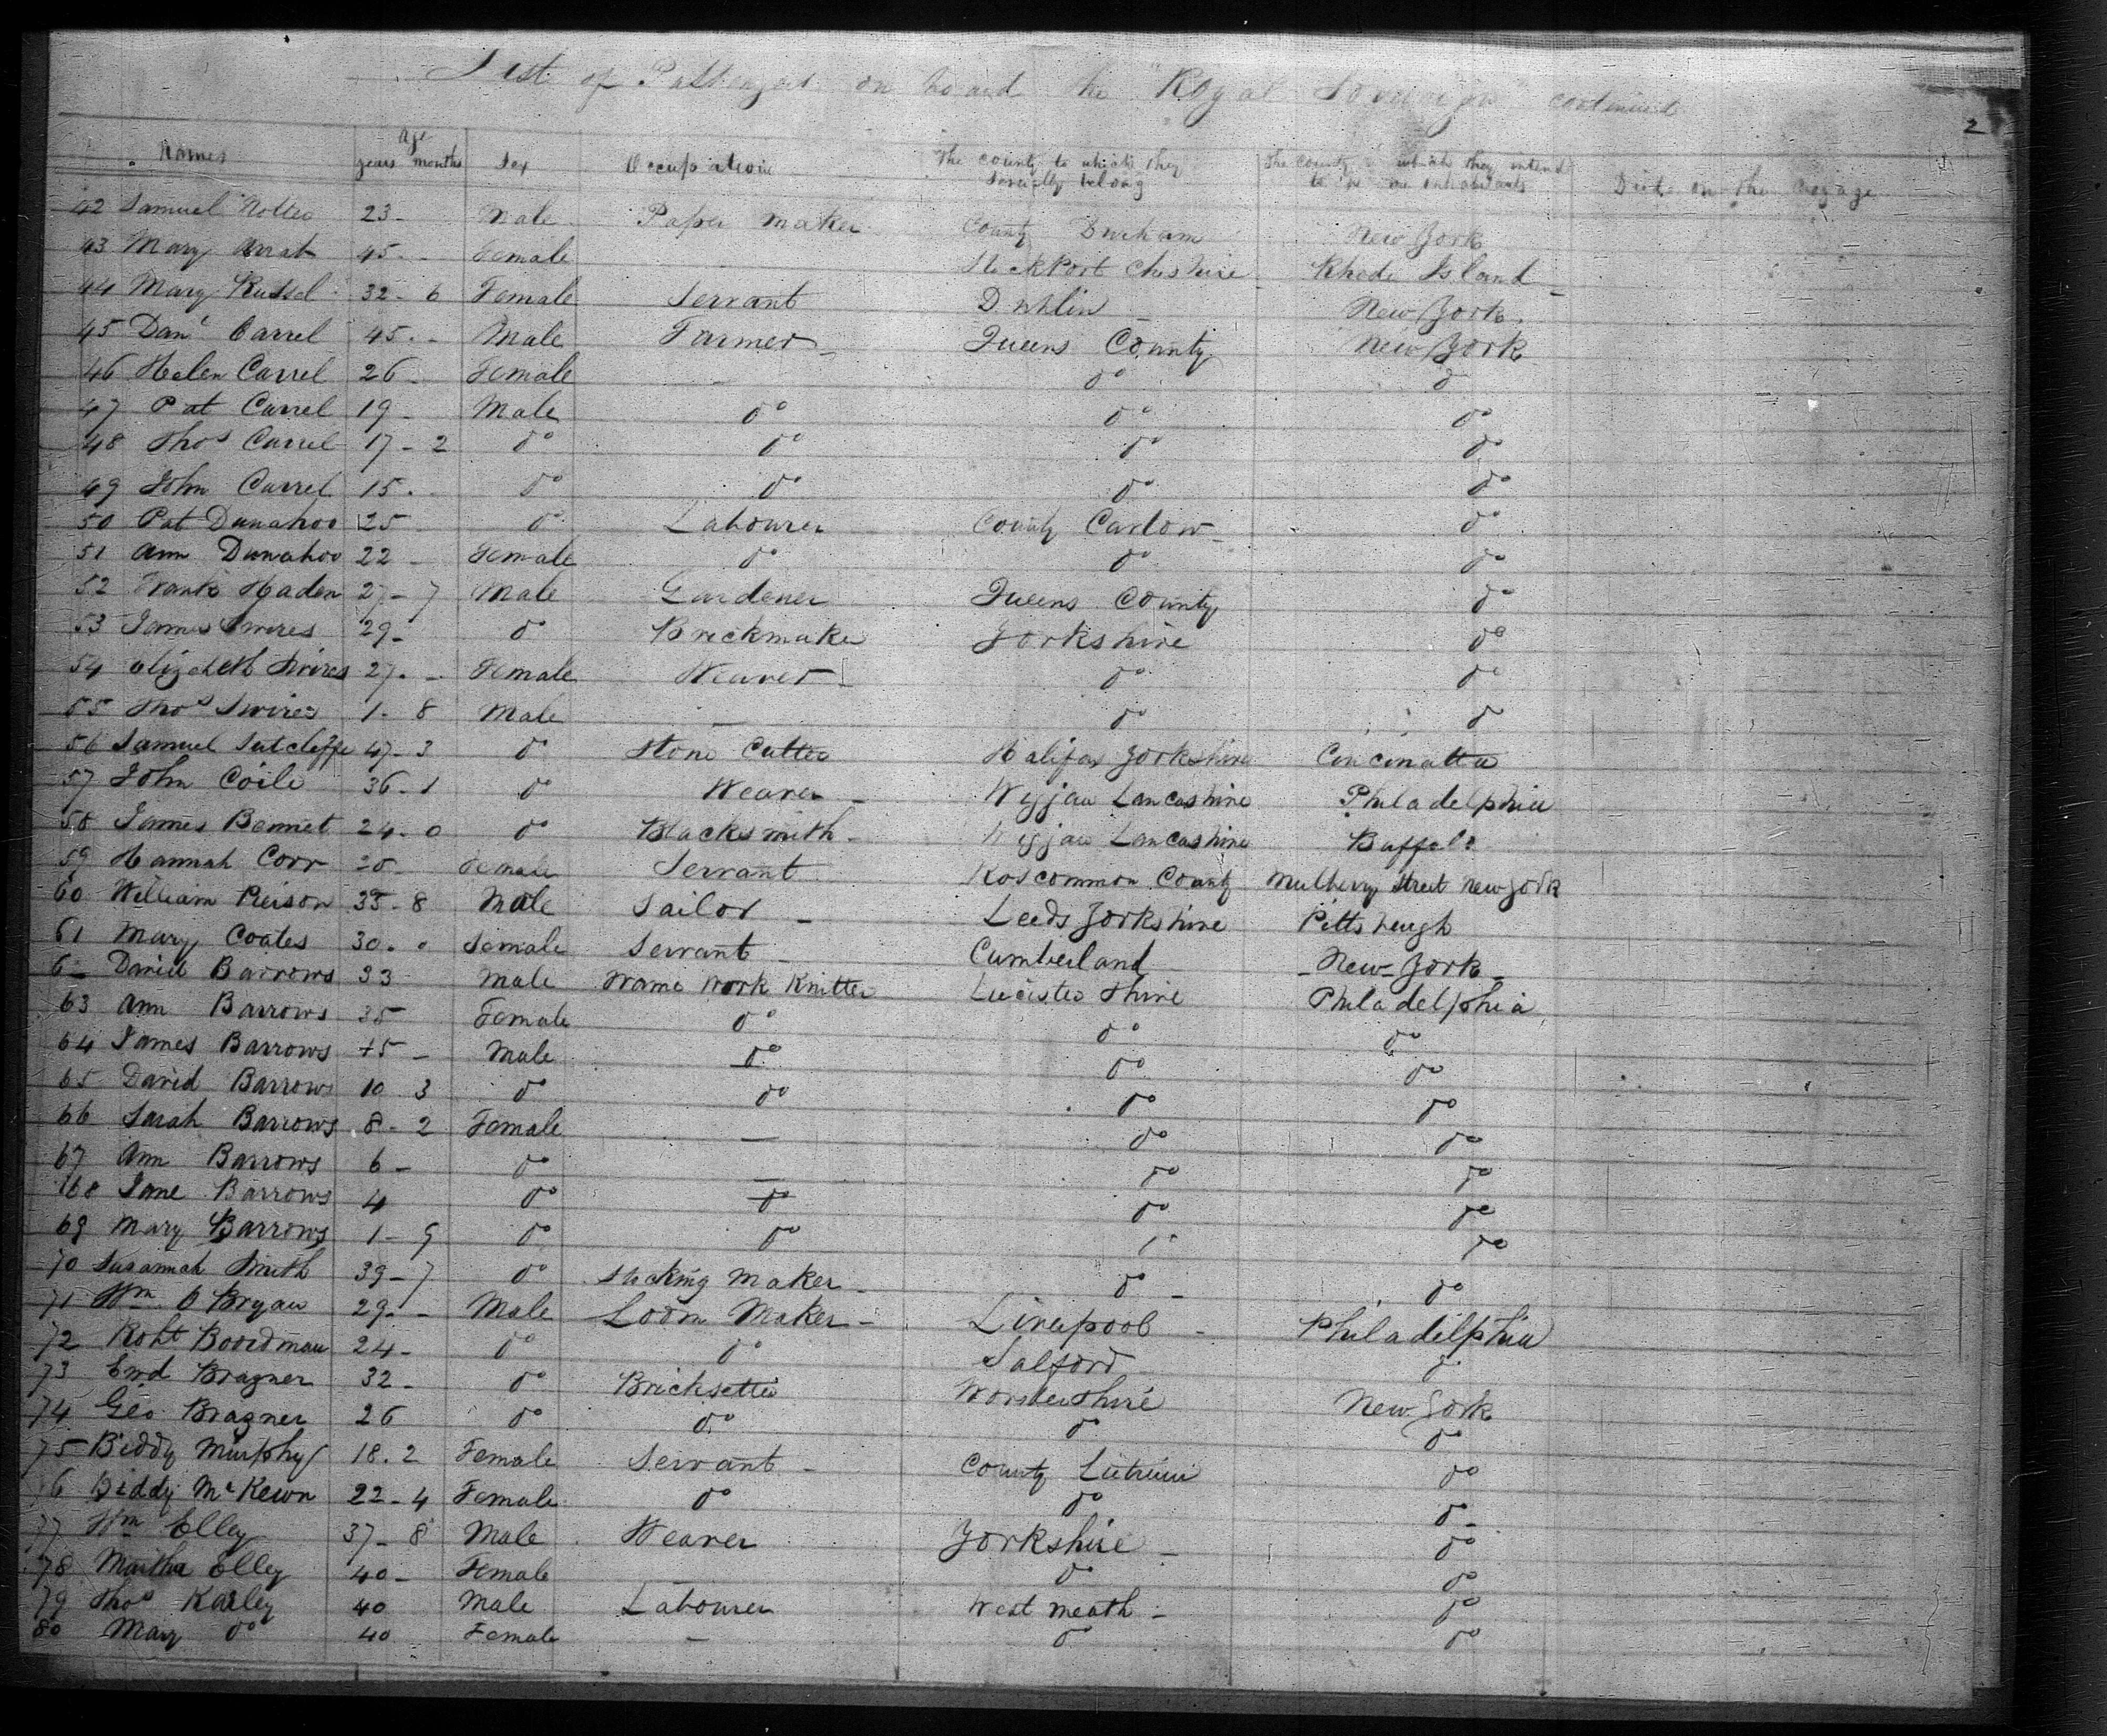 List of Passengers on board the "Royal Sovereign" continued
2
Names Age years months Sex Occupation The county to which they severally belong The county to which they intend to become inhabitants Died on the voyage
42 Samuel 23 - Male Paper Maker County Durham New York
43 Mary 45 - - Female Stockport Cheshire Rhode Island -
44 Mary Russel 32 - 6 Female Servant Dublin - New York.
45 Danl Carrel 45 - Male Farmer - Queens County New York
46 Helen Carrel 26 - Female - do do
47 Pat Carrel 19 - Male do do do
48 Thos Carrel 17 - 2 do do do do
49 John Carrel 15 . do do do do
50 Pat Dunahoo 25 do Labourer County Carlow - do
51 Ann Dunahoo 22 - Female do do do
52 Frank Haden 27 - 7 Male Gardener Queens County do
53 James Swires 29 - do Brickmaker Yorkshire do
54 Elizabeth Swires 27 . - Female Weaver - do do
55 Thos Swires 1 - 8 Male - do do
56 Samuel Sutcliffe 47 - 3 do Stone Cutter Halifax Yorkshire Cincinatta
57 John Coile 36 - 1 do Weaver - Wyjan Lancashire Philadelphia
58 James Bennet 24 - 0 do Blacksmith - Wyjan Lancashire Buffalo
59 Hannah Corr 20 - Female Servant Roscommon County Mulberry Street New York
60 William Pierson 35 - 8 Male Sailor - Leeds Yorkshire Pittsburgh
61 Mary Coates 30 . 0 Female Servant - Cumberland - New York -
6 David Barrows 33 Male Frame Work Knitter Leicester Shire Philadelphia
63 Ann Barrows 35 Female do do do
64 James Barrows 15 - Male do do do
65 David Barrows 10 3 do do do do
66 Sarah Barrows 8 - 2 Female - do do
67 Ann Barrows 6 - do - do do
68 Jane Barrows 4 do do do do
69 Mary Barrows 1 - 9 do do do do
70 Susannah Smith 39 - 7 do Stocking Maker - do - do
71 Wm O Bryan 29 - - Male Loom Maker - Liverpool - Philadelphia
72 Robt Boordman 24 - do do Salford do
73 Ewd Bragner 32 - do Bricksetter Worstershire New York
74 Geo Bragner 26 do do do do
75 Biddy Murphy 18 . 2 Female Servant - County Lietrim do
6 Biddy McKewn 22 - 4 Female do do do -
77 Wm Elley 37 - 8 Male Weaver Yorkshire - do
78 Martha Elley 40 - Female - do do
79 Thos Karley 40 Male Labourer West Meath - do
80 Mary do 40 Female - do do